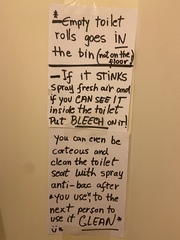 * Empty toilet
rolls goes in
the bin (not on the
floor)
— If it STINKS
spray fresh air and
if you CAN SEE IT
inside the toilet
PUT BLEECH on it!
you can even be
corteous and
clean the toilet
seat with spray
anti-bac after
*you use* to the
next person to
use it CLEAN*